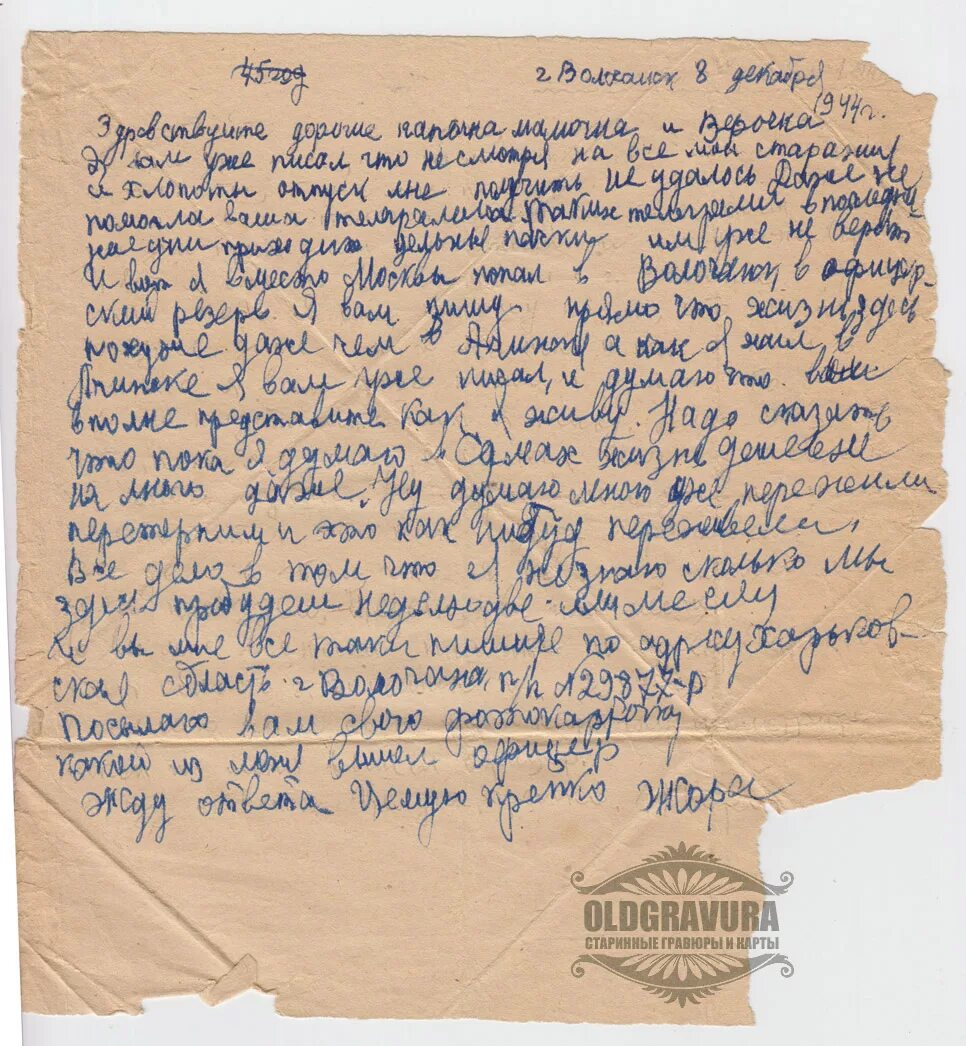 45 год
г. Волчанск 8 декабря
1944 г.
Здравствуйте дорогие папочка мамочка и Верочка
Я вам уже писал что не смотря на все мои старания
и хлопоты отпуск мне получить не удалось Даже не
помогла ваша телеграмма. Таких телеграмм в последни
нае дни приходит цельные пачки им уже не верят
И вот я вместо Москвы попал в Волочанск, в офицер-
ский резерв. Я вам пишу прямо что жизнь здесь
похуже даже чем в а как я жил в
я вам уже писал, и думаю что вы
вполне представите как я живу. Надо сказать
что пока я думаю жизнь дешевле
на много даже. Ну думаю много уже пережили
перетерпим и это как нибуд
Все дело в том что я не знаю сколько мы
здесь пробудем неделю две или месяц
вы мне все таки пишите по адресу Харьков-
ская область г Волочанск, п/п №29877-Р
Посылаю вам свою фотокарточку
какой из меня вышел офицер
Жду ответа Целую крепко Жора
OLDGRAVURA
СТАРИННЫЕ ГРАВЮРЫ И КАРТЫ